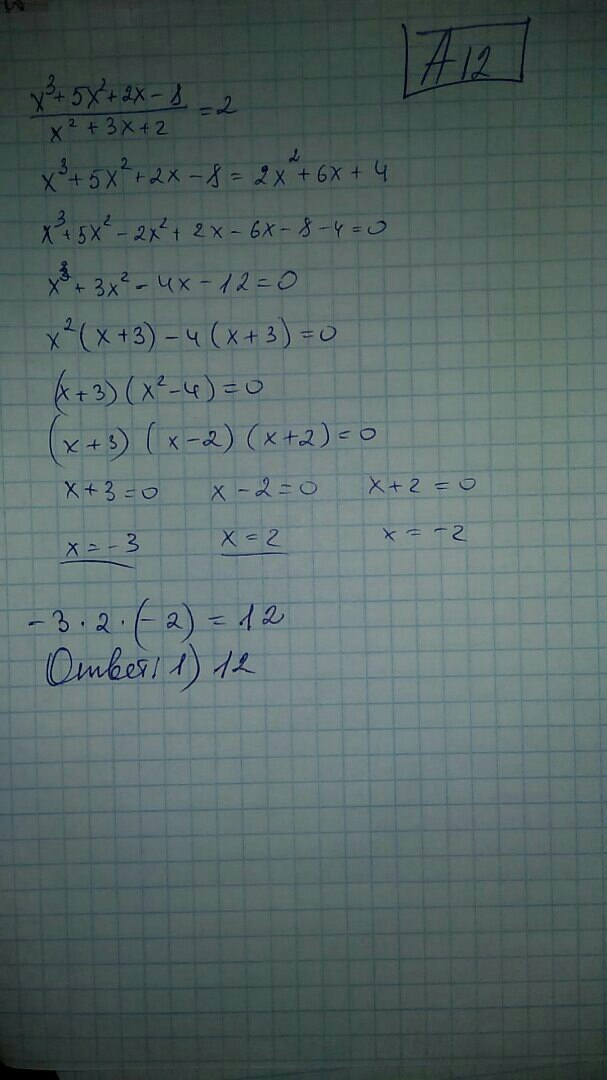 A12
x³+5x²+2x-8 / x²+3x+2 = 2
x³+5x²+2x-8=2x²+6x+4
x³+5x²-2x²+2x-6x-8-4=0
x³+3x²-4x-12=0
x²(x+3)-4(x+3)=0
(x+3)(x²-4)=0
(x+3)(x-2)(x+2)=0
x+3=0 x-2=0 x+2=0
x=-3 x=2 x=-2
-3·2·(-2)=12
Ответ: 1) 12